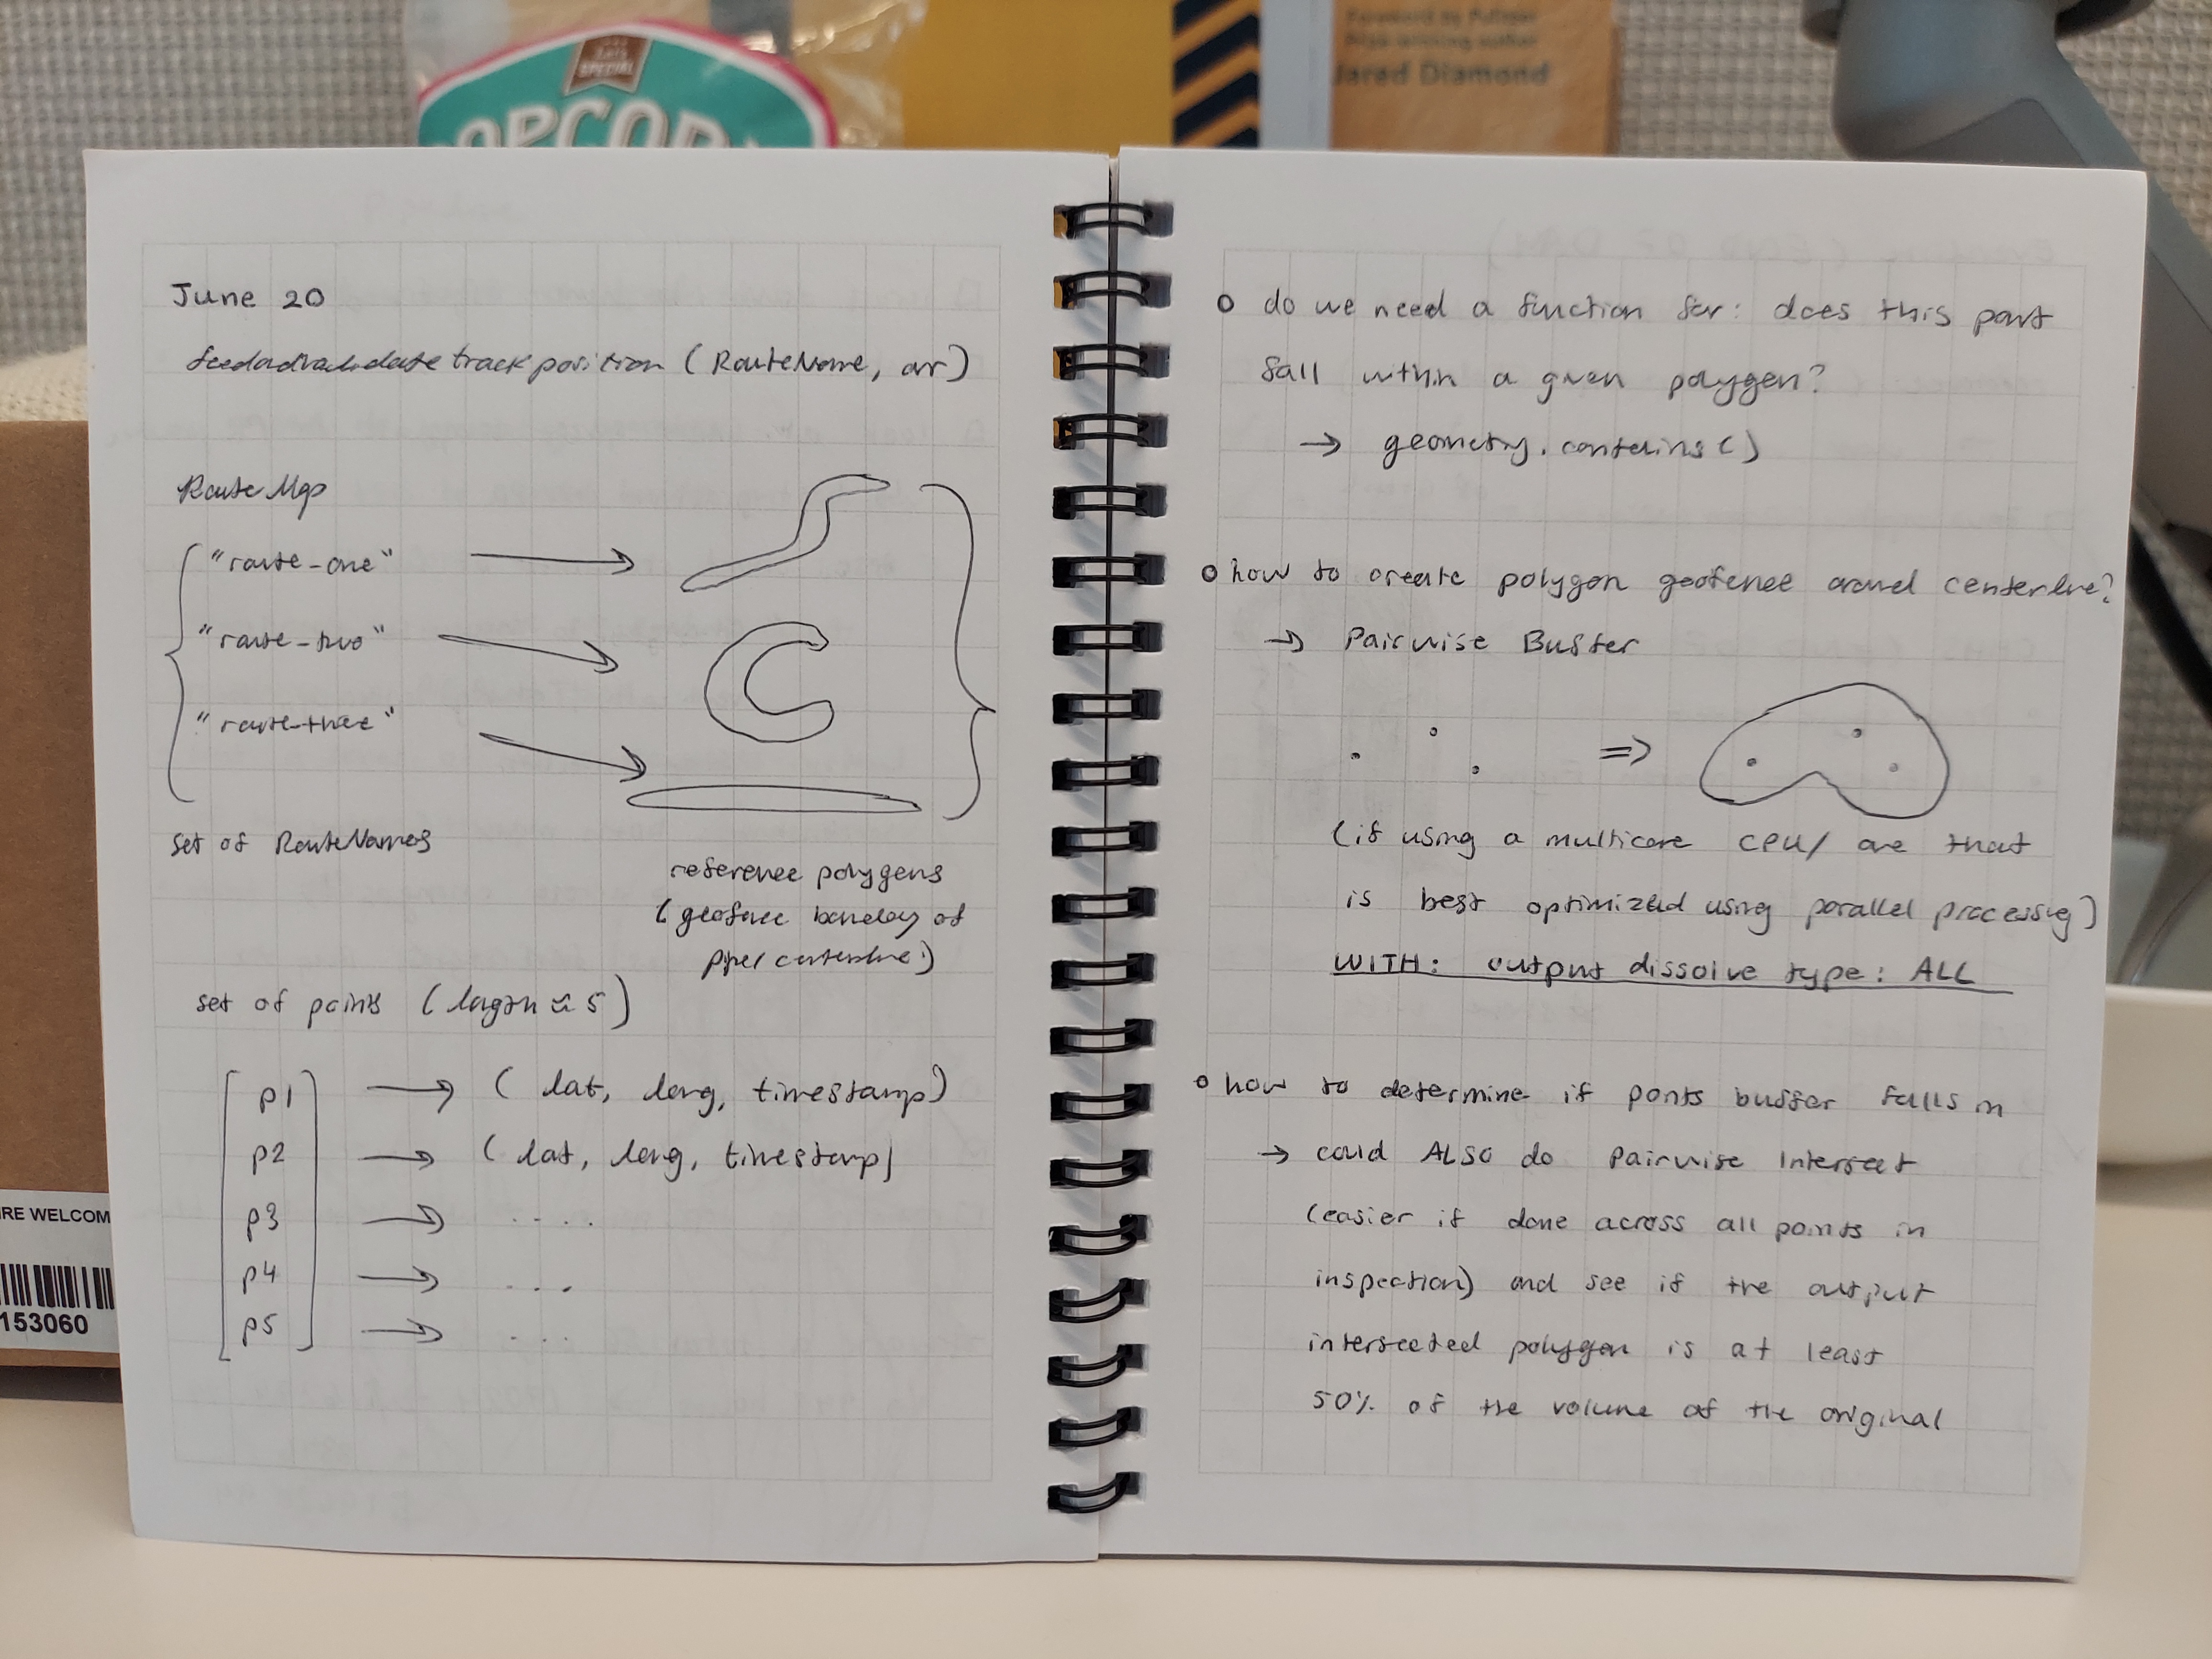 June 20
track position (RouteName, arr)
RouteMap
"route-one"
"route-two"
"route-three"
set of RouteNames
reference polygens
(geofence boundary of
centerline)
set of points (length ≈ 5)
p1 → (lat, long, timestamp)
p2 → (lat, long, timestamp)
p3 → ....
p4 → ...
p5 → ...
o do we need a function for: does this part
fall within a given polygen?
→ geometry.contains()
o how to create polygon geofence around centerline?
→ Pairwise Buffer
=>
(if using a multicore CPU/ one that
is best optimized using parallel processing)
WITH: output dissolve type: ALL
o how to determine if points buffer falls in
→ could ALSO do Pairwise Intersect
(easier if done across all points in
inspection) and see if the output
intersected polygon is at least
50% of the volume of the original
SPECIAL
Foreword by Pulitzer
Prize-winning author
Jared Diamond
RE WELCOM
153060